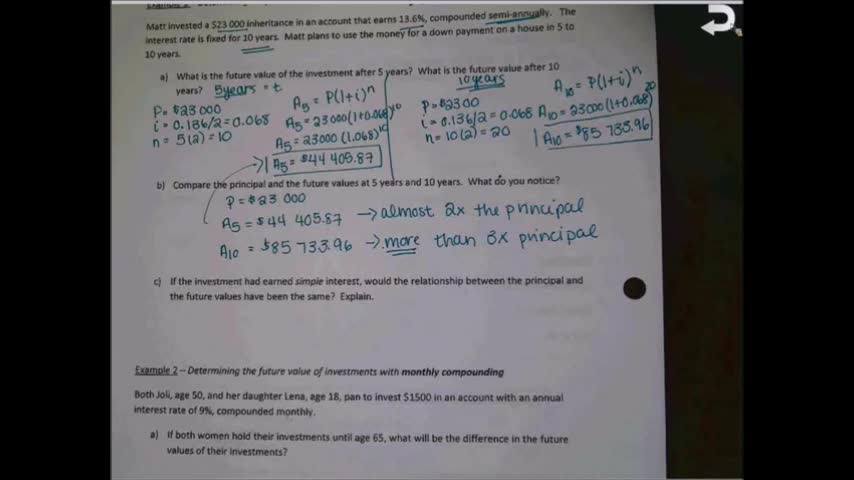 Matt invested a $23 000 inheritance in an account that earns 13.6%, compounded semi-annually. The
interest rate is fixed for 10 years. Matt plans to use the money for a down payment on a house in 5 to
10 years.
a) What is the future value of the investment after 5 years? What is the future value after 10
years?
5years = t
P= $23 000
i = 0.136/2 = 0.068
n = 5(2) = 10
A5 = P(1+i)^n
A5 = 23000(1+0.068)^10
A5 = 23000 (1.068)^10
A5 = $44 405.87
10years
P= $2300
i = 0.136/2 = 0.068
n = 10(2) = 20
A10 = P(1+i)^n
A10 = 23000(1+0.068)^20
A10 = $85 733.96
b) Compare the principal and the future values at 5 years and 10 years. What do you notice?
P = $23 000
A5 = $44 405.87 → almost 2x the principal
A10 = $85 733.96 → more than 3x principal
c) If the investment had earned simple interest, would the relationship between the principal and
the future values have been the same? Explain.
Example 2 – Determining the future value of investments with monthly compounding
Both Joli, age 50, and her daughter Lena, age 18, pan to invest $1500 in an account with an annual
interest rate of 9%, compounded monthly.
a) If both women hold their investments until age 65, what will be the difference in the future
values of their investments?